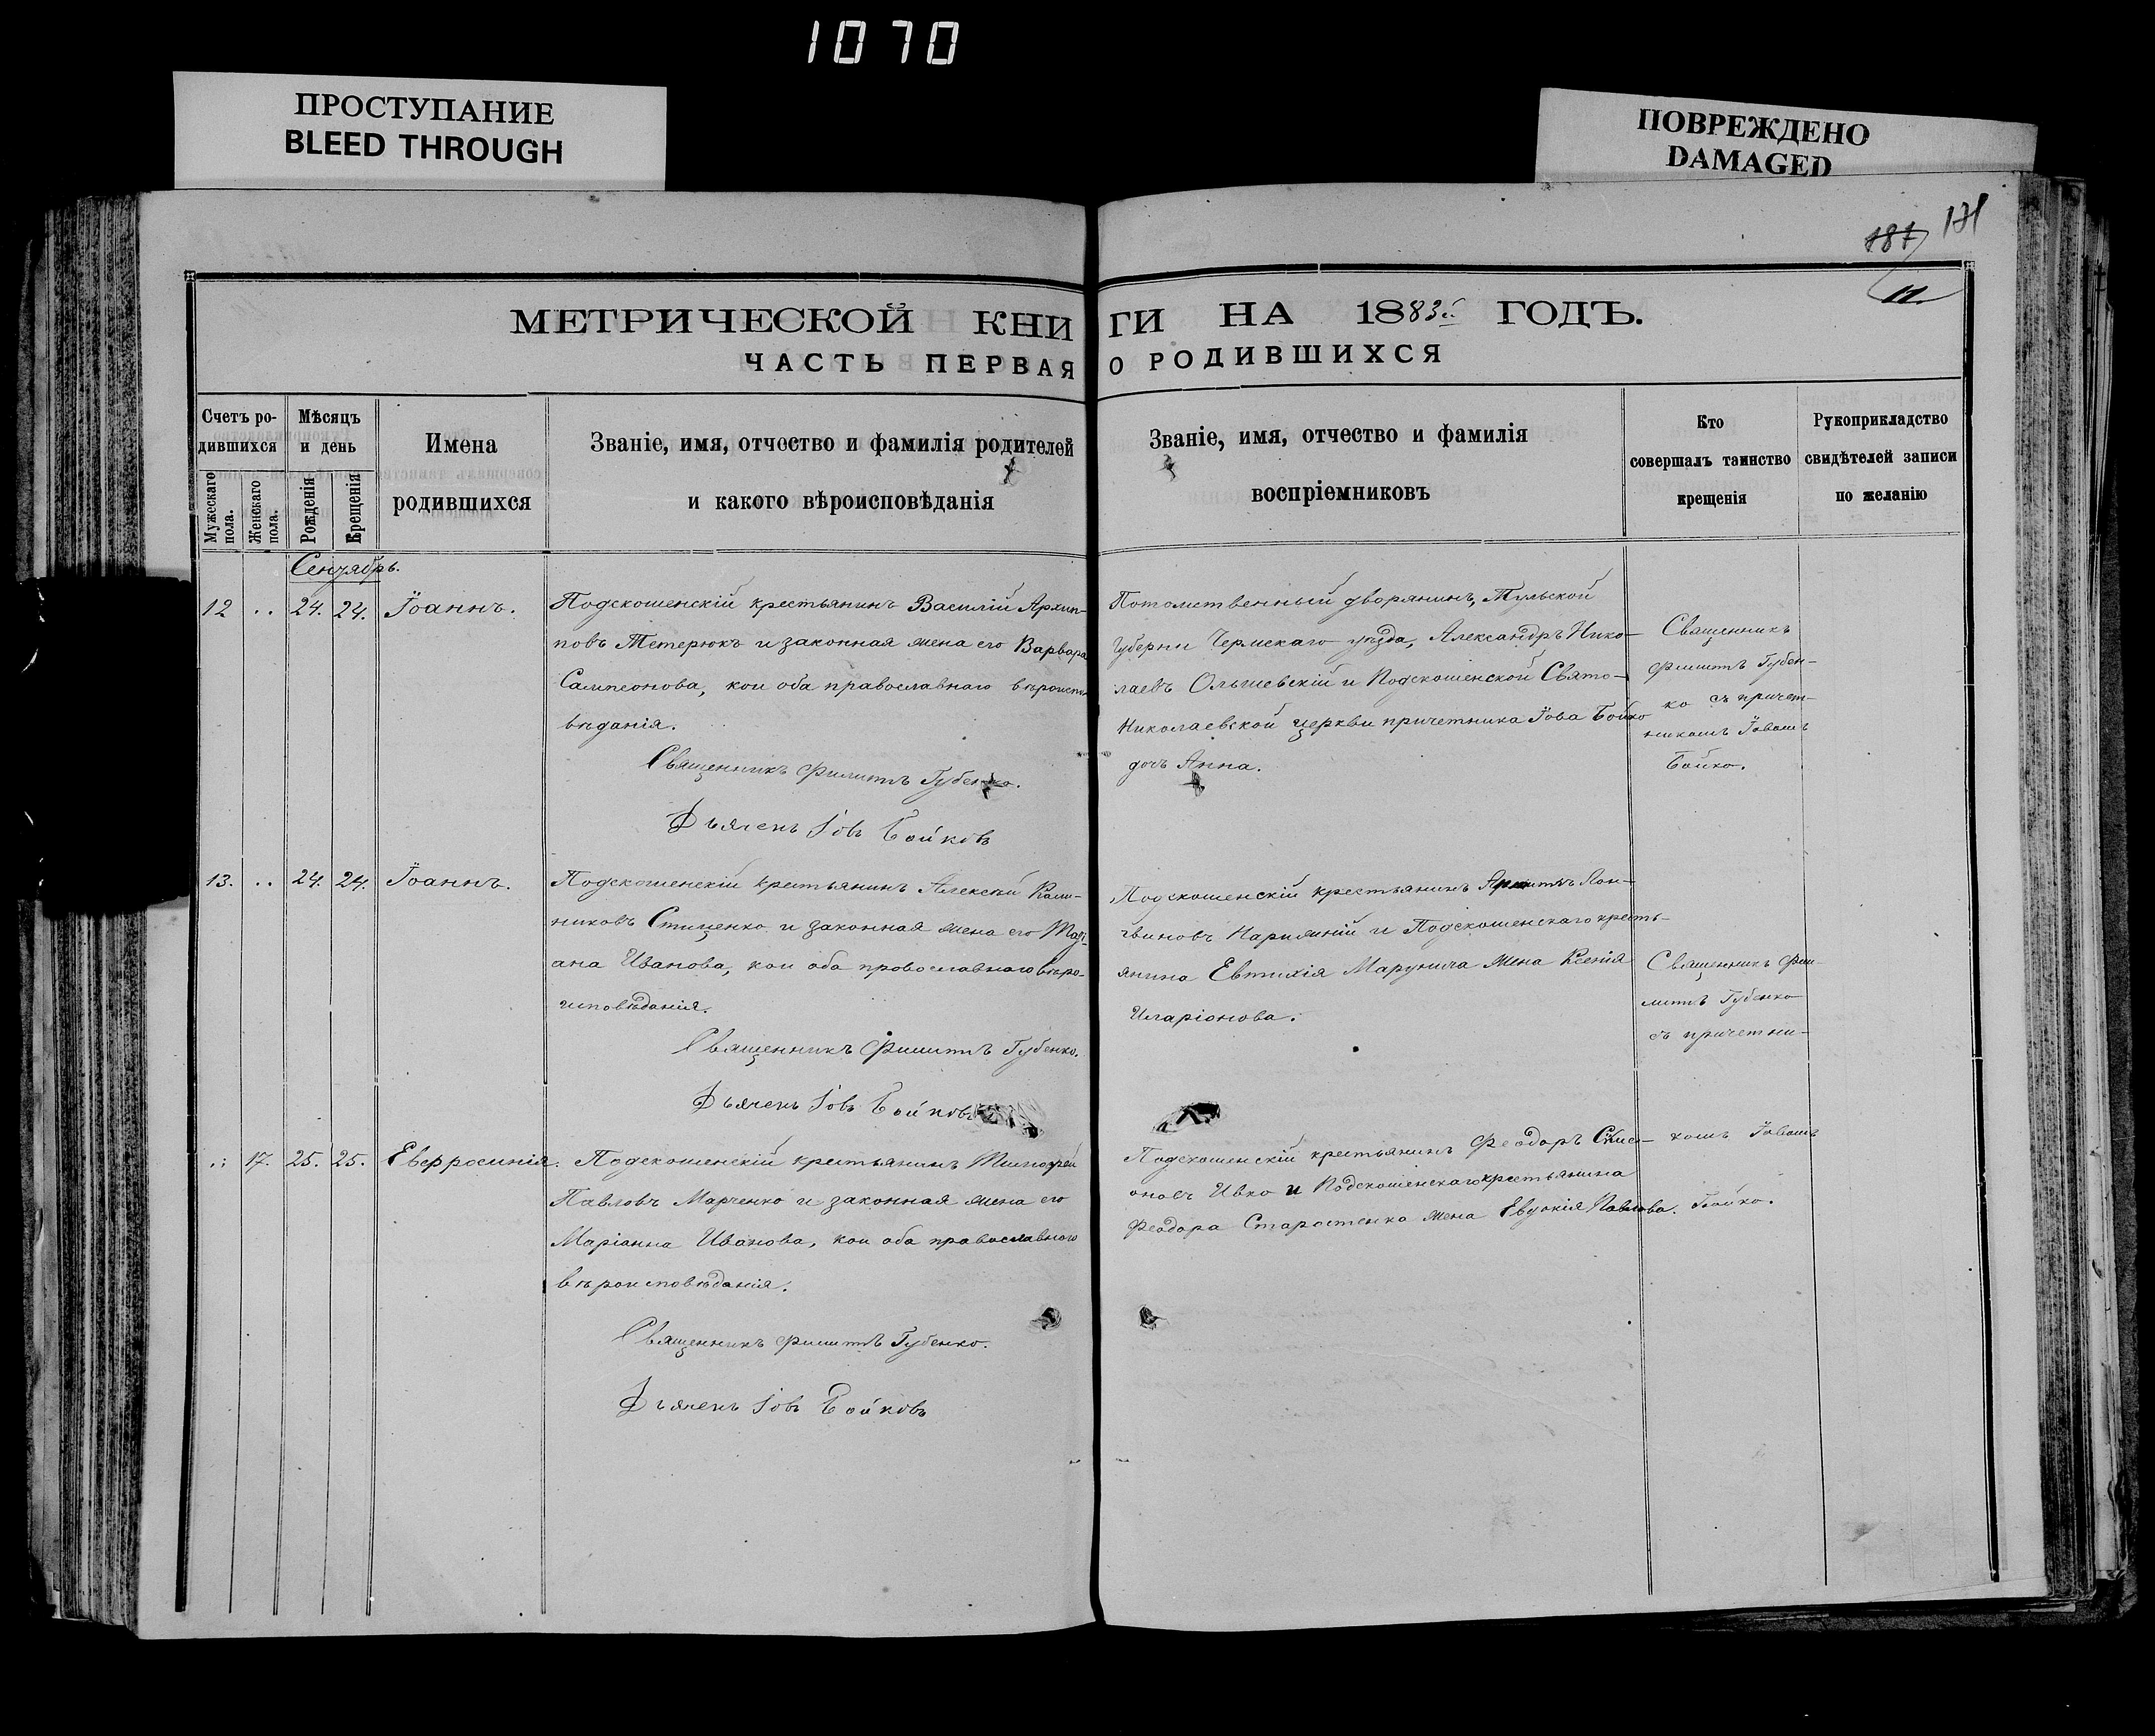 1070
ПРОСТУПАНИЕ
BLEED THROUGH
ПОВРЕЖДЕНО
DAMAGED
187 131
11.
МЕТРИЧЕСКОЙ КНИГИ НА 1883й ГОДЪ.
ЧАСТЬ ПЕРВАЯ О РОДИВШИХСЯ
Счетъ ро-
дившихся
Мужескаго пола.
Женскаго пола.
Мѣсяцъ
и день
Рожденія
Крещенія
Имена
родившихся
Званіе, имя, отчество и фамилія родителей
и какого вѣроисповѣданія
Званіе, имя, отчество и фамилія
воспріемниковъ
Кто
совершалъ таинство
крещенія
Рукоприкладство
свидѣтелей записи
по желанію
Сентябрь.
12 .. 24. 24. Іоаннъ.
Подскошенскій крестьянинъ Василій Архип-
повъ Тетерюкъ и законная жена его Варвара
Сампсонова, кои оба православнаго вѣроиспо-
вѣданія.
Священникъ Филиппъ Губенко.
Дьячекъ Іовъ Бойковъ
Потомственный дворянинъ, Тульской
Губерни уѣзда, Александръ Нико-
лаевъ Ольшевскій и Подскошенской Свято-
Николаевской церкви причетника Іова Бойко
дочь Анна.
Священникъ
Филиппъ Губен-
ко съ причет-
никомъ Іовомъ
Бойко.
13. .. 24. 24. Іоаннъ.
Подскошенскій крестьянинъ Алексѣй
никовъ Стиценко и законная жена его
ана Иванова, кои оба провославнаго вѣро-
исповѣданія.
Священникъ Филиппъ Губенко.
Дьячекъ Іовъ Бойковъ
Подскошенскій крестьянинъ Лон-
гвиновъ и Подскошенскаго кресть-
янина Евтихія Марунича жена Ксенія
Иларіонова.
Священникъ Фи-
липпъ Губенко
съ причетни-
.. 17. 25. 25. Евфросинія.
Подскошенскій крестьянинъ Тимофей
Павловъ Марченко и законная жена его
Маріанна Иванова, кои оба православнаго
вѣроисповѣданія.
Священникъ Филиппъ Губенко.
Дьячекъ Іовъ Бойковъ
Подскошенскій крестьянинъ Феодоръ
оновъ Ивко и Подскошенскаго крестьянина
Феодора Старостенка жена Евдокія Павлова.
комъ Іовомъ
Бойко.